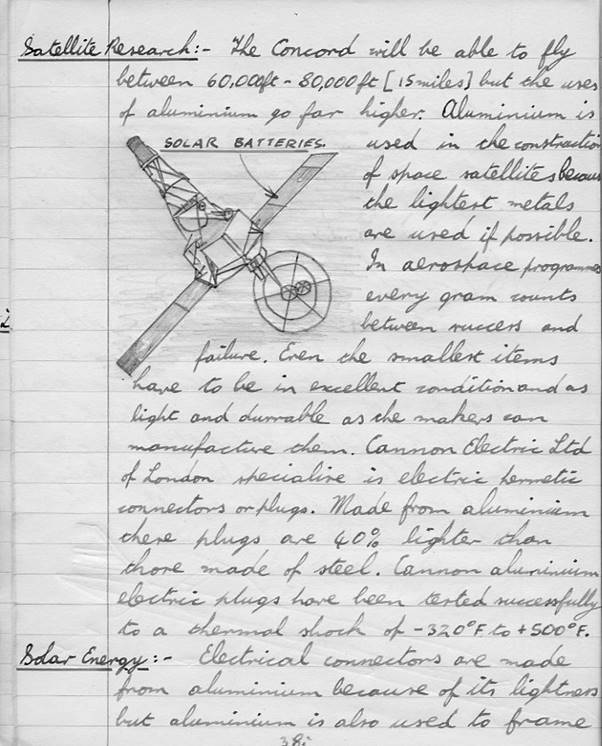 Satellite Research:- The Concord will be able to fly
between 60,000ft - 80,000ft [15 miles] but the uses
of aluminium go far higher. Aluminium is
SOLAR BATTERIES.
used in the construction
of space satellites because
the lightest metals
are used if possible.
In aerospace programmes
every gram counts
between success and
failure. Even the smallest items
have to be in excellent condition and as
light and durrable as the makers can
manufacture them. Cannon Electric Ltd
of London specialise is electric hermetic
connectors or plugs. Made from aluminium
these plugs are 40% lighter than
those made of steel. Cannon aluminium
electric plugs have been tested successfully
to a thermal shock of -320°F. to +500°F.
Solar Energy:- Electrical connectors are made
from aluminium because of its lightness
but aluminium is also used to frame
38.